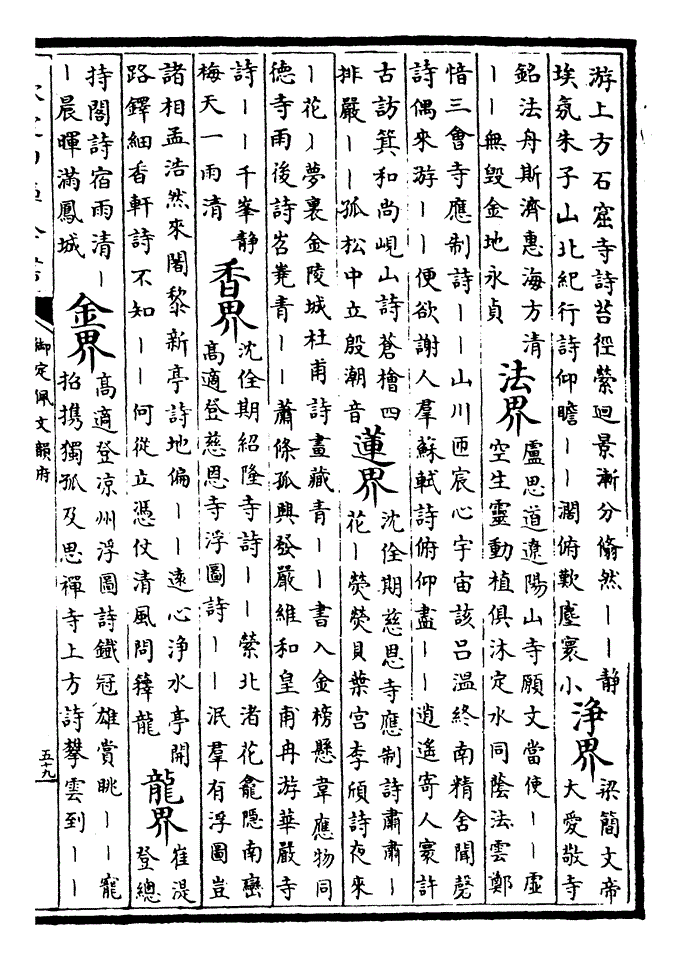 游上方石窟寺詩苔徑縈迴景漸分翛然丨丨靜
埃氛朱子山北紀行詩仰瞻丨丨濶俯歎塵寰小
淨界
梁簡文帝
大愛敬寺
銘法舟斯濟惠海方清
丨丨無毀金地永貞
法界
盧思道遼陽山寺願文當使丨丨虛
空生靈動植俱沐定水同蔭法雲鄭
愔三會寺應制詩丨丨山川匝宸心宇宙該呂溫終南精舍聞磬
詩偶來游丨丨便欲謝人羣蘇軾詩俯仰盡丨丨逍遙寄人寰許
古訪箕和尚峴山詩蒼檜四
排嚴丨丨孤松中立殷潮音
蓮界
沈佺期慈恩寺應制詩肅肅丨
花丨熒熒貝葉宮李頎詩夜來
丨花丨夢裏金陵城杜甫詩畫藏青丨丨書入金榜懸韋應物同
德寺雨後詩岧嶤青丨丨蕭條孤興發嚴維和皇甫冉游華嚴寺
詩丨丨千峯靜
梅天一雨清
香界
沈佺期紹隆寺詩丨丨縈北渚花龕隱南巒
高適登慈恩寺浮圖詩丨丨泯羣有浮圖豈
諸相孟浩然來闍黎新亭詩地偏丨丨遠心淨水亭開
路鐸細香軒詩不知丨丨何從立憑仗清風問籜龍
龍界
崔湜
登總
持閣詩宿雨清丨
丨晨暉滿鳳城
金界
高適登凉州浮圖詩鐵冠雄賞眺丨丨寵
招攜獨孤及思禪寺上方詩攀雲到丨丨
御定佩文韻府
五十九